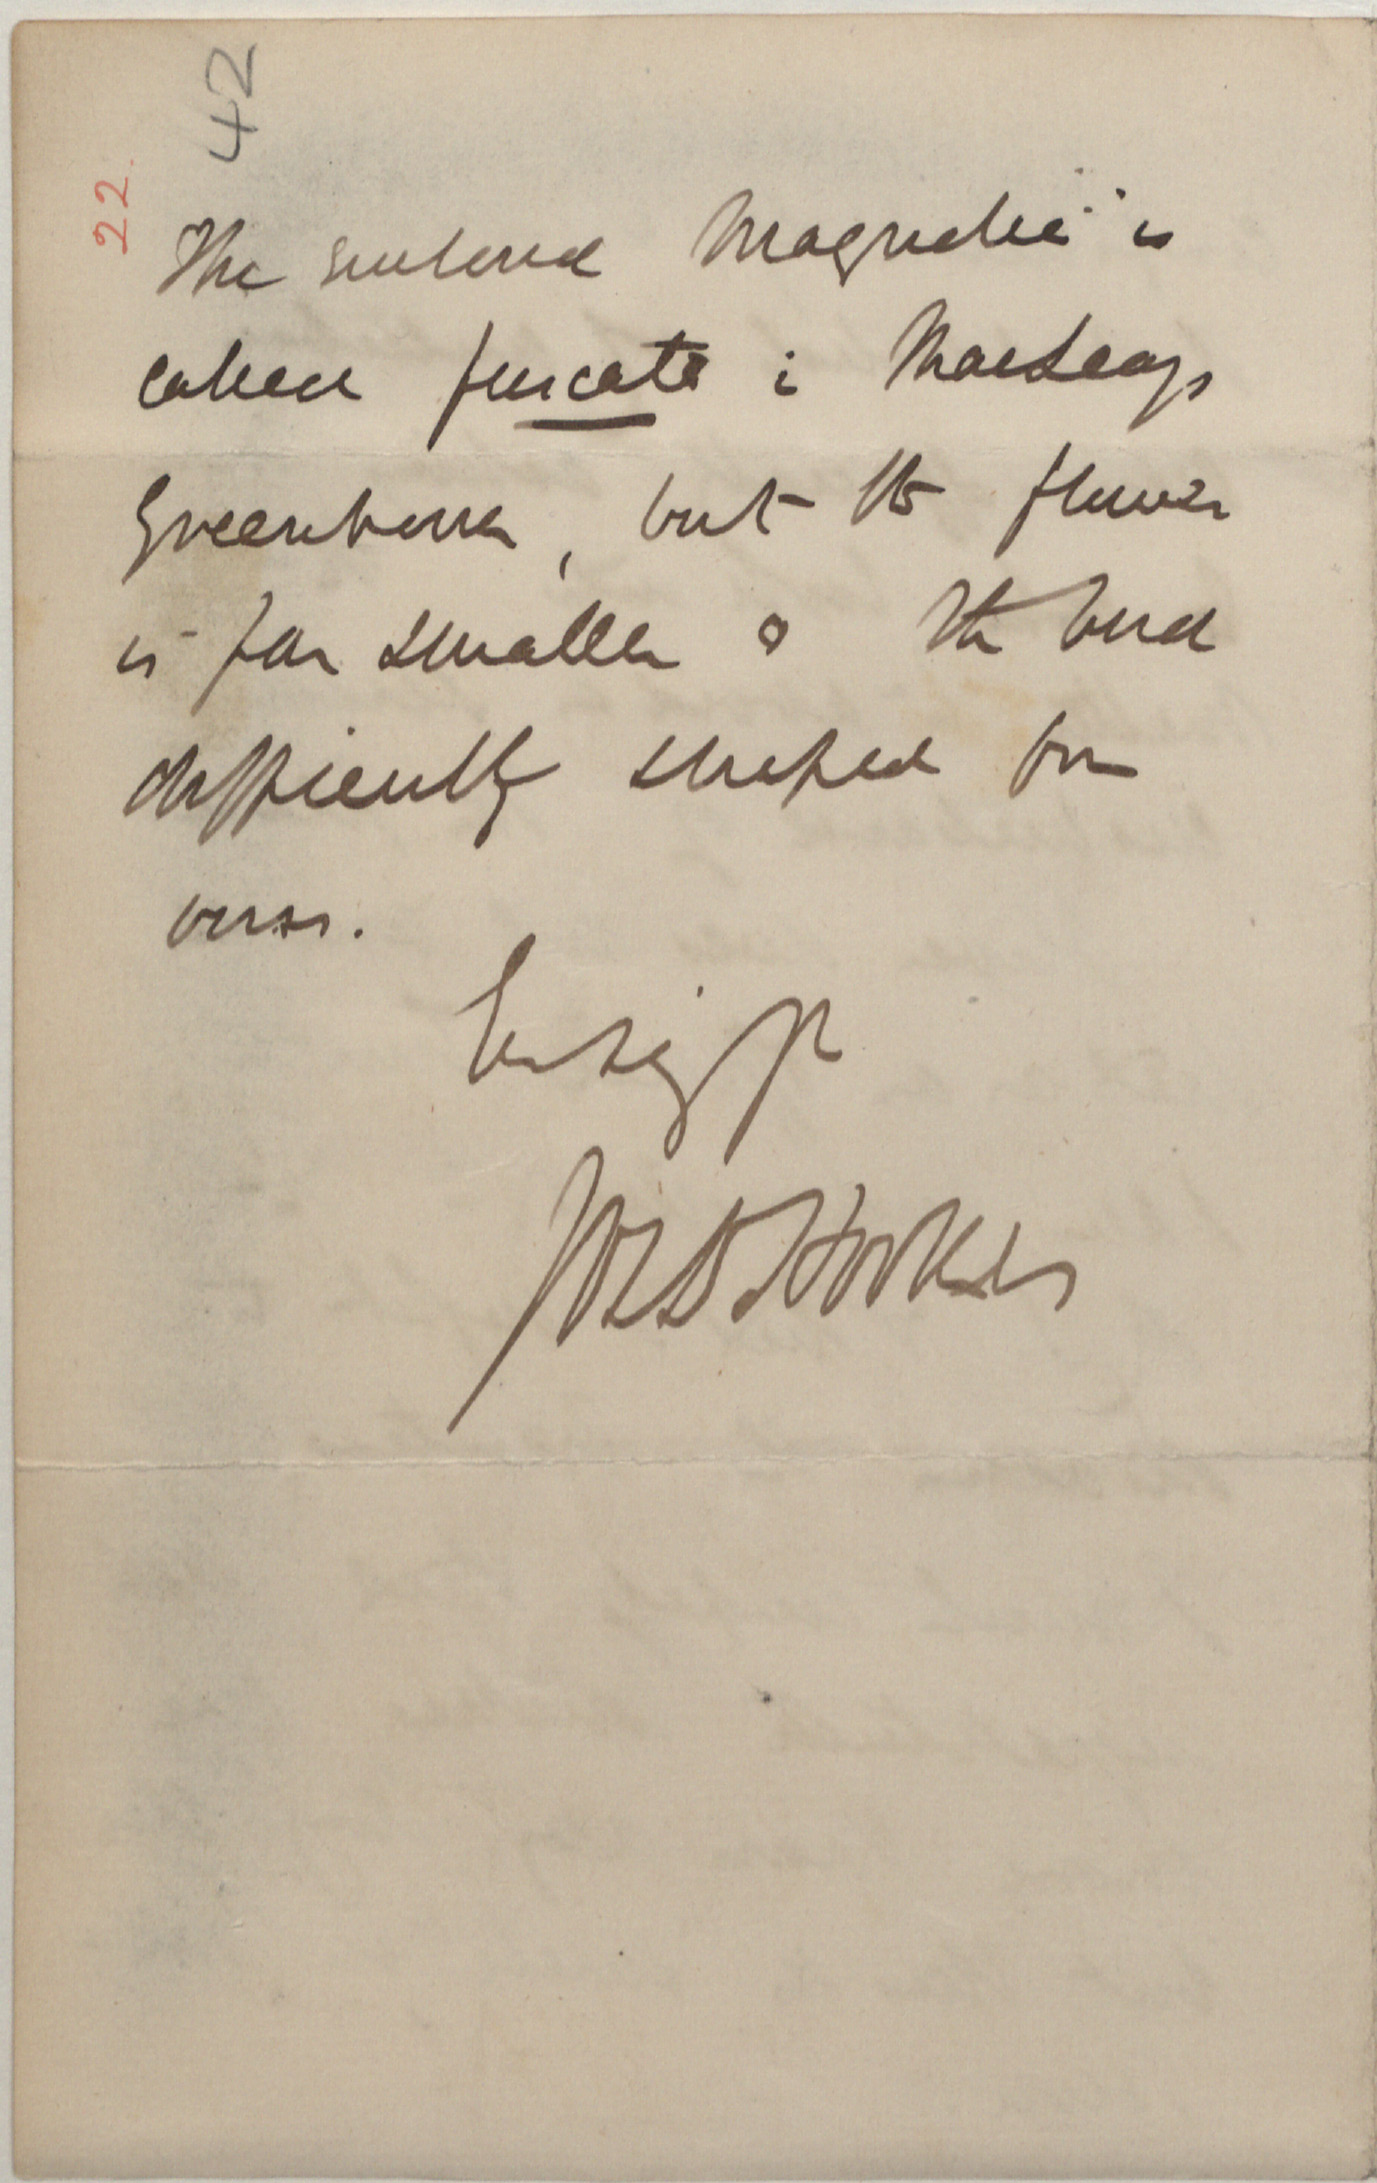 42
22
The enclosed Magnolia is
called fuscata in MacLeay's
Greenhouse, but the flower
is far smaller & the bud
differently shaped from
ours.
Ever sincely yrs
Jos D Hooker